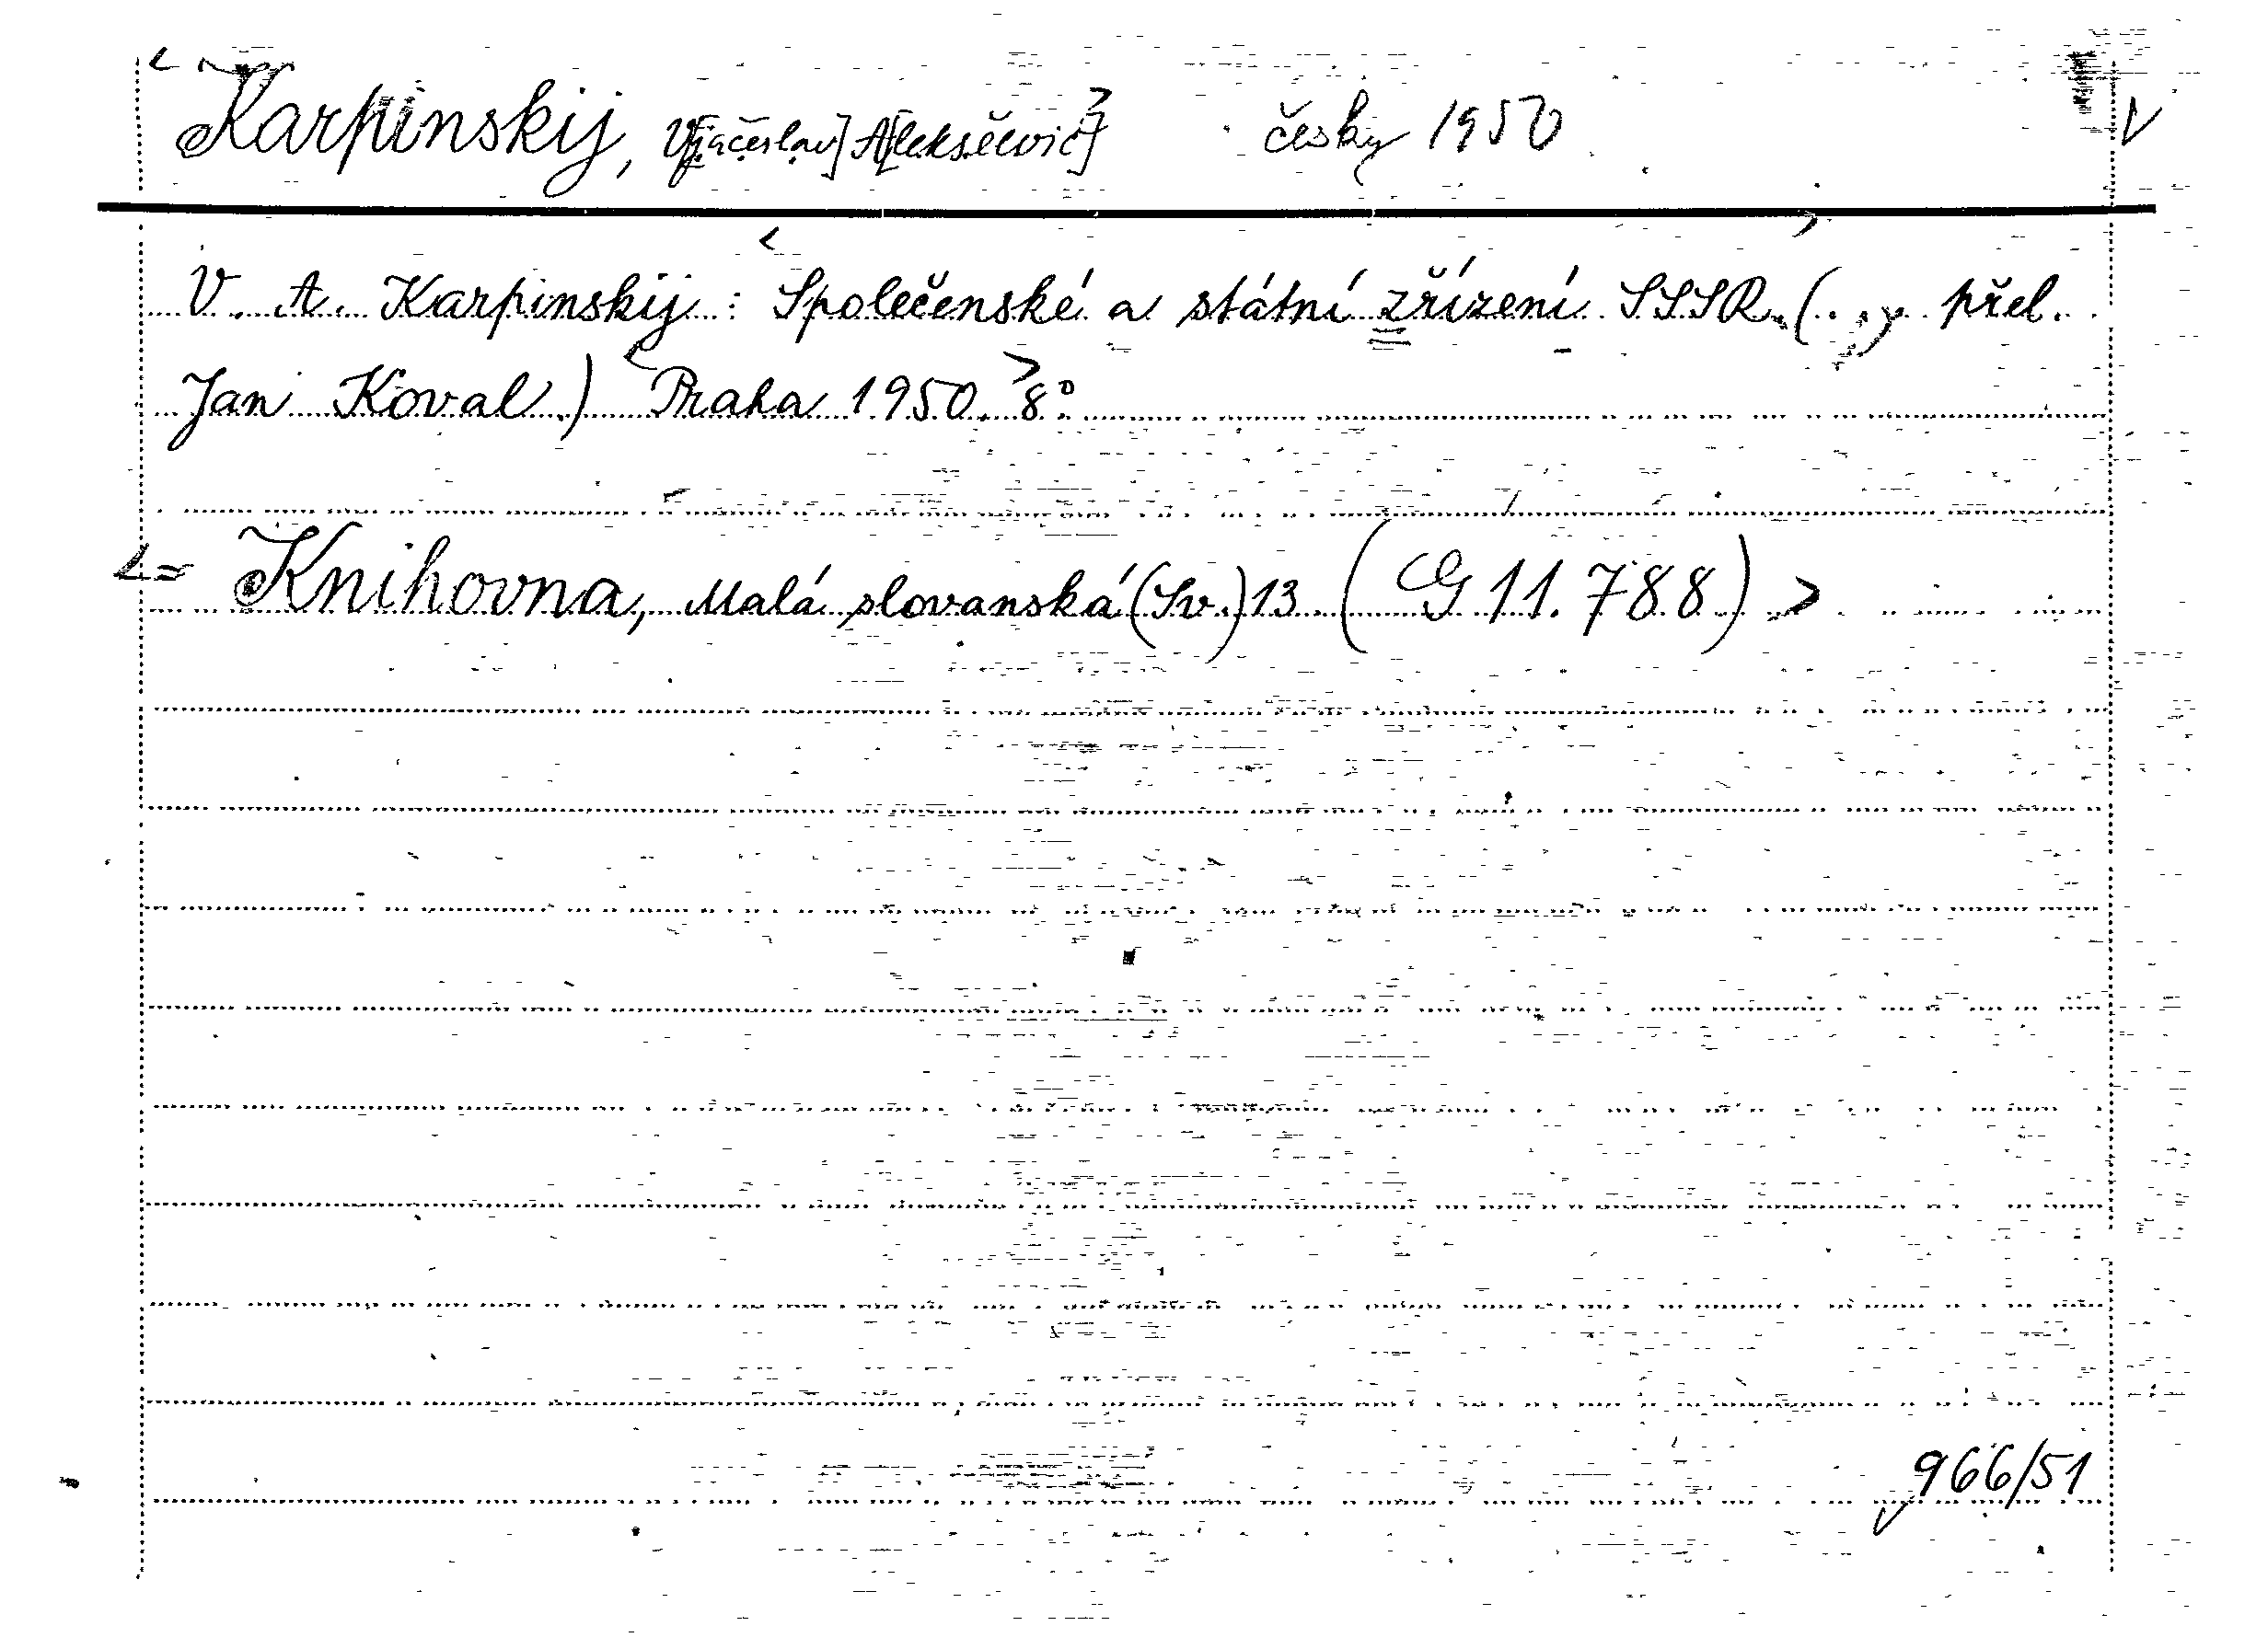 Karpinskij, V[jačeslav] A[leksěevič] česky 1950
V. A. Karpinskij: Společenské a státní zřízení SSSR. (... přel.
Jan Koval.) Praha 1950. 8°.
= Knihovna, Malá slovanská (Sv.) 13 (G 11.788)
966/51